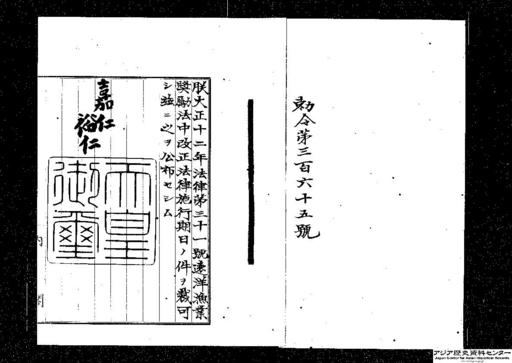 勅令第三百六十五號
朕大正十二年法律第三十一號遠洋漁業
奬勵法中改正法律施行期日ノ件ヲ裁可
シ玆ニ之ヲ公布セシム
嘉仁
裕仁
天皇
御璽
内閣
アジア歴史資料センター
Japan Center for Asian Historical Records